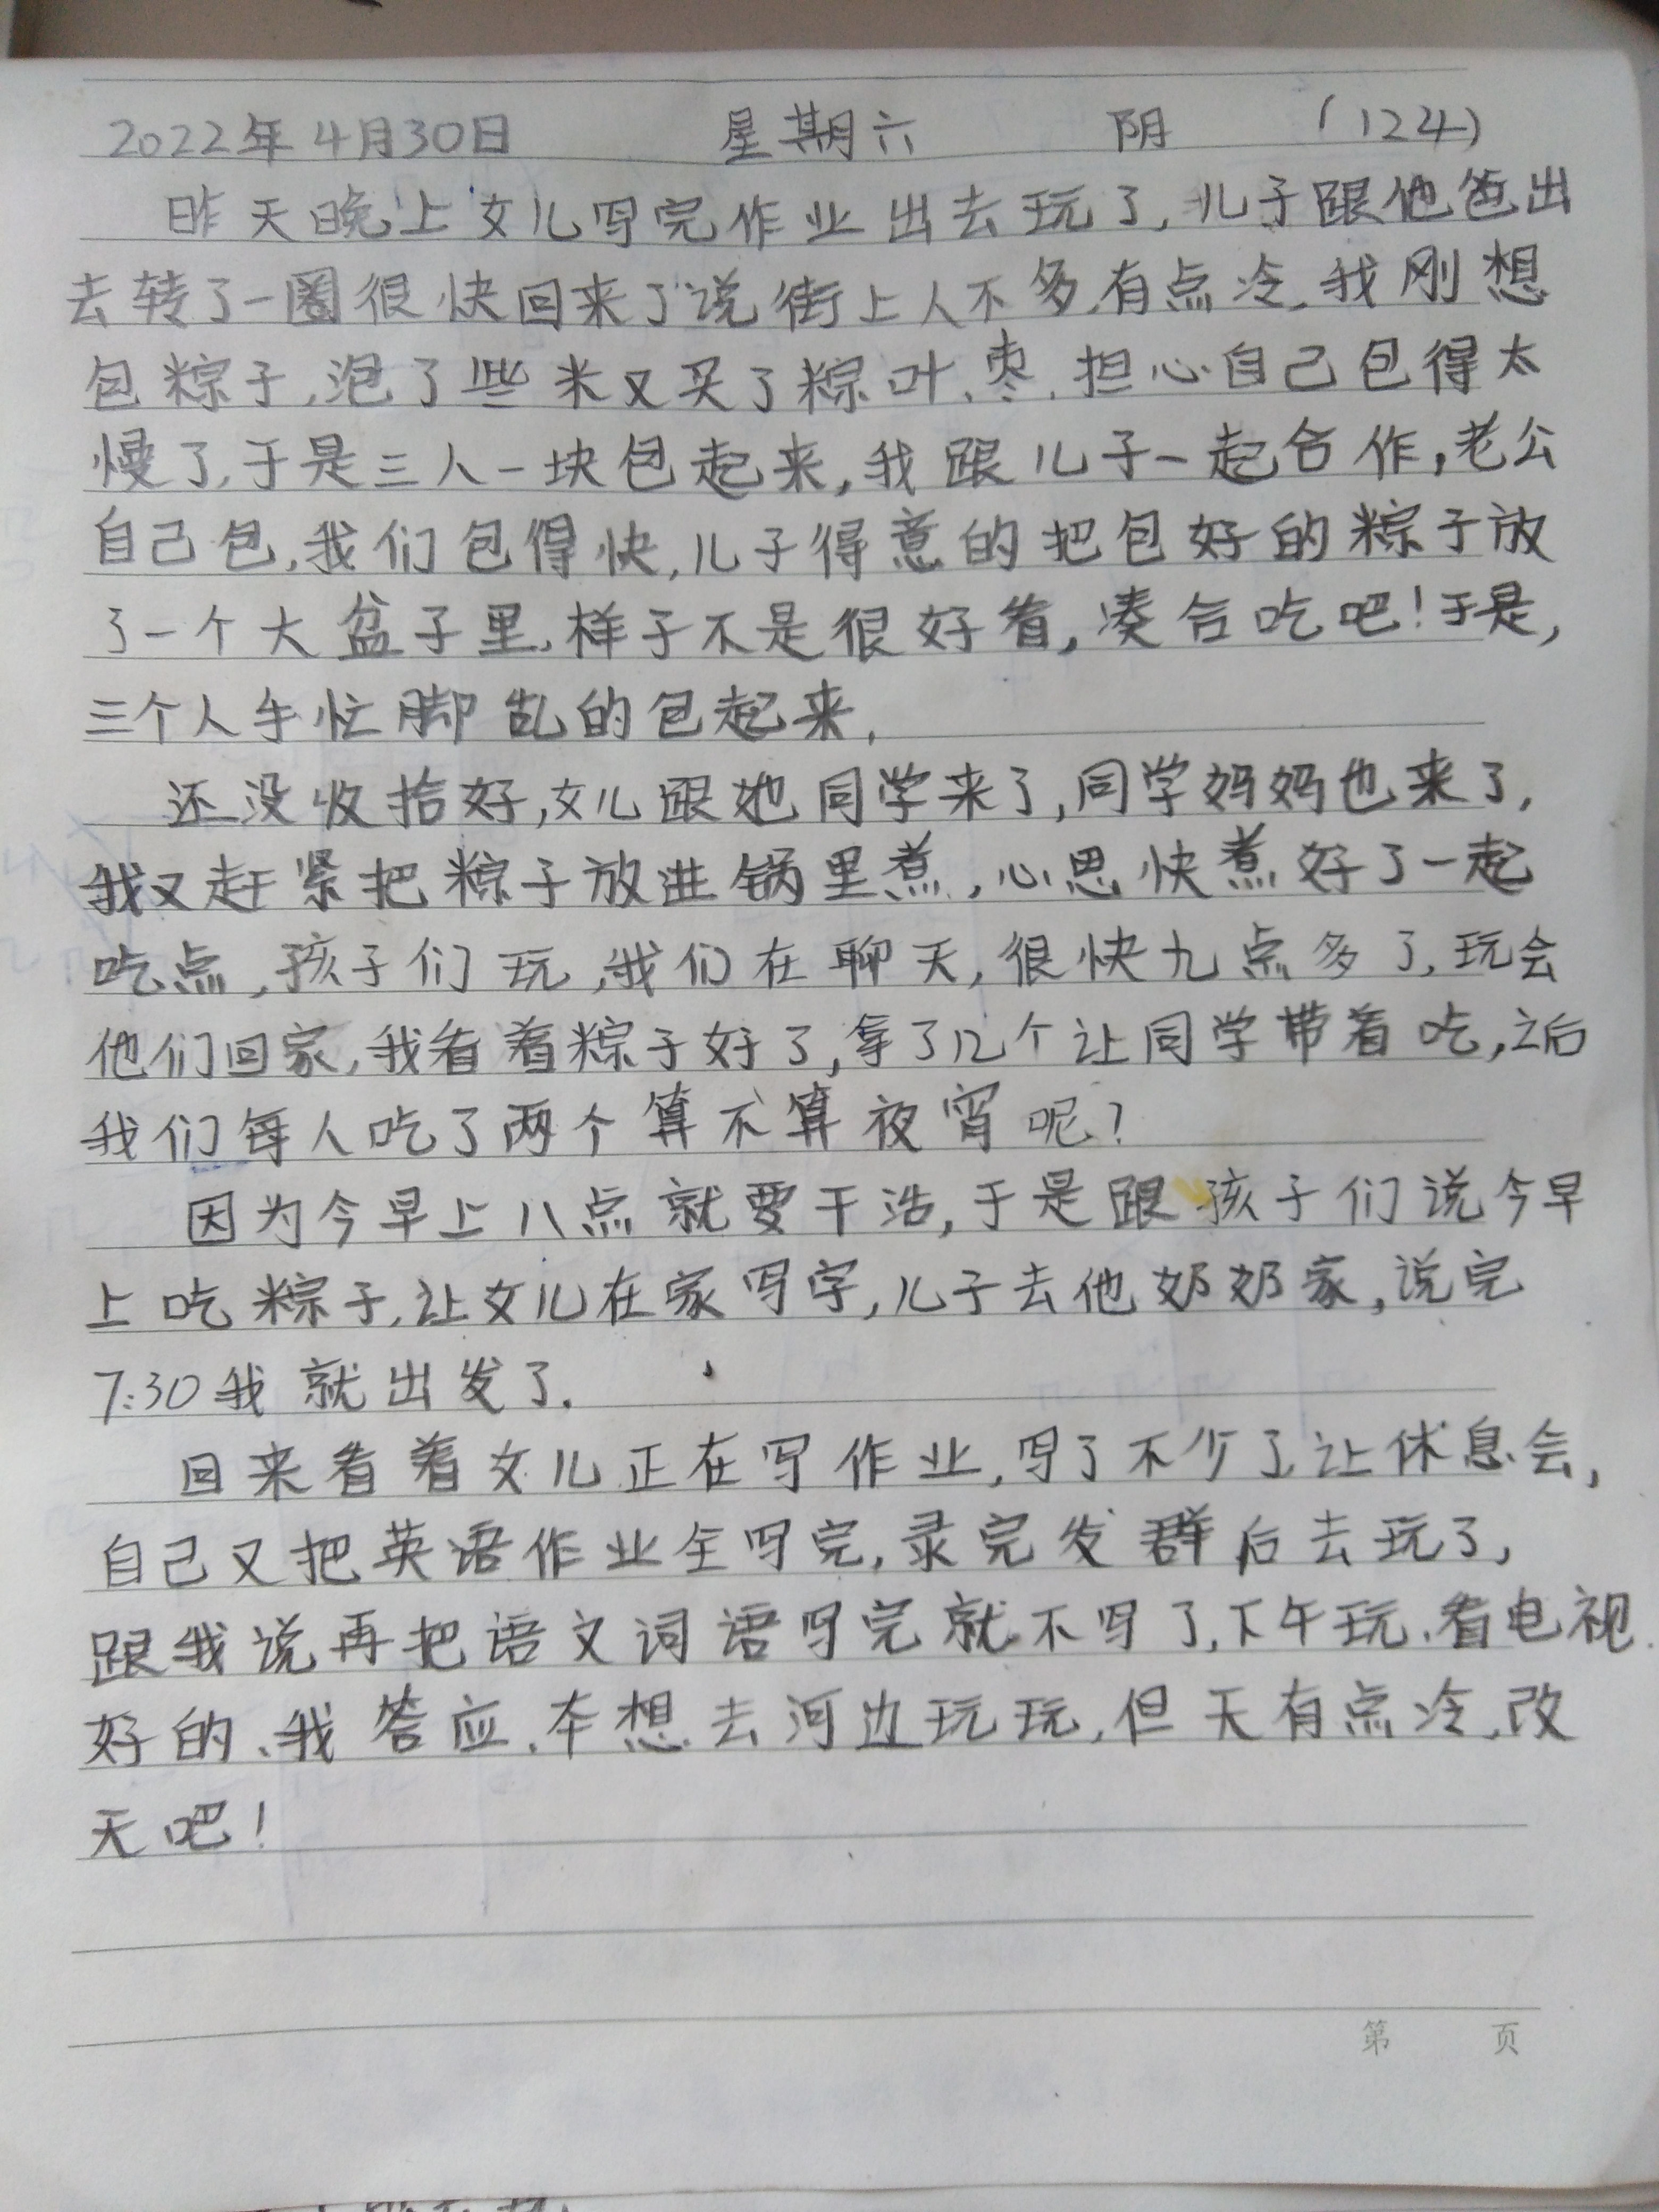 2022年4月30日 星期六 阴 (124)
昨天晚上女儿写完作业出去玩了,儿子跟他爸出
去转了一圈很快回来了说街上人不多,有点冷,我刚想
包粽子,泡了些米又买了粽叶、枣,担心自己包得太
慢了,于是三人一块包起来,我跟儿子一起合作,老公
自己包,我们包得快,儿子得意的把包好的粽子放
了一个大盆子里,样子不是很好看,凑合吃吧!于是,
三个人手忙脚乱的包起来.
还没收拾好,女儿跟她同学来了,同学妈妈也来了,
我又赶紧把粽子放进锅里煮,心思快煮好了一起
吃点,孩子们玩,我们在聊天,很快九点多了,玩会
他们回家,我看着粽子好了,拿了几个让同学带着吃,之后
我们每人吃了两个算不算夜宵呢?
因为今早上八点就要干活,于是跟孩子们说今早
上吃粽子,让女儿在家写字,儿子去他奶奶家,说完
7:30我就出发了.
回来看着女儿正在写作业,写了不少了让休息会,
自己又把英语作业全写完,录完发群后去玩了,
跟我说再把语文词语写完就不写了,下午玩、看电视.
好的、我答应、本想去河边玩玩,但天有点冷,改
天吧!
第 页